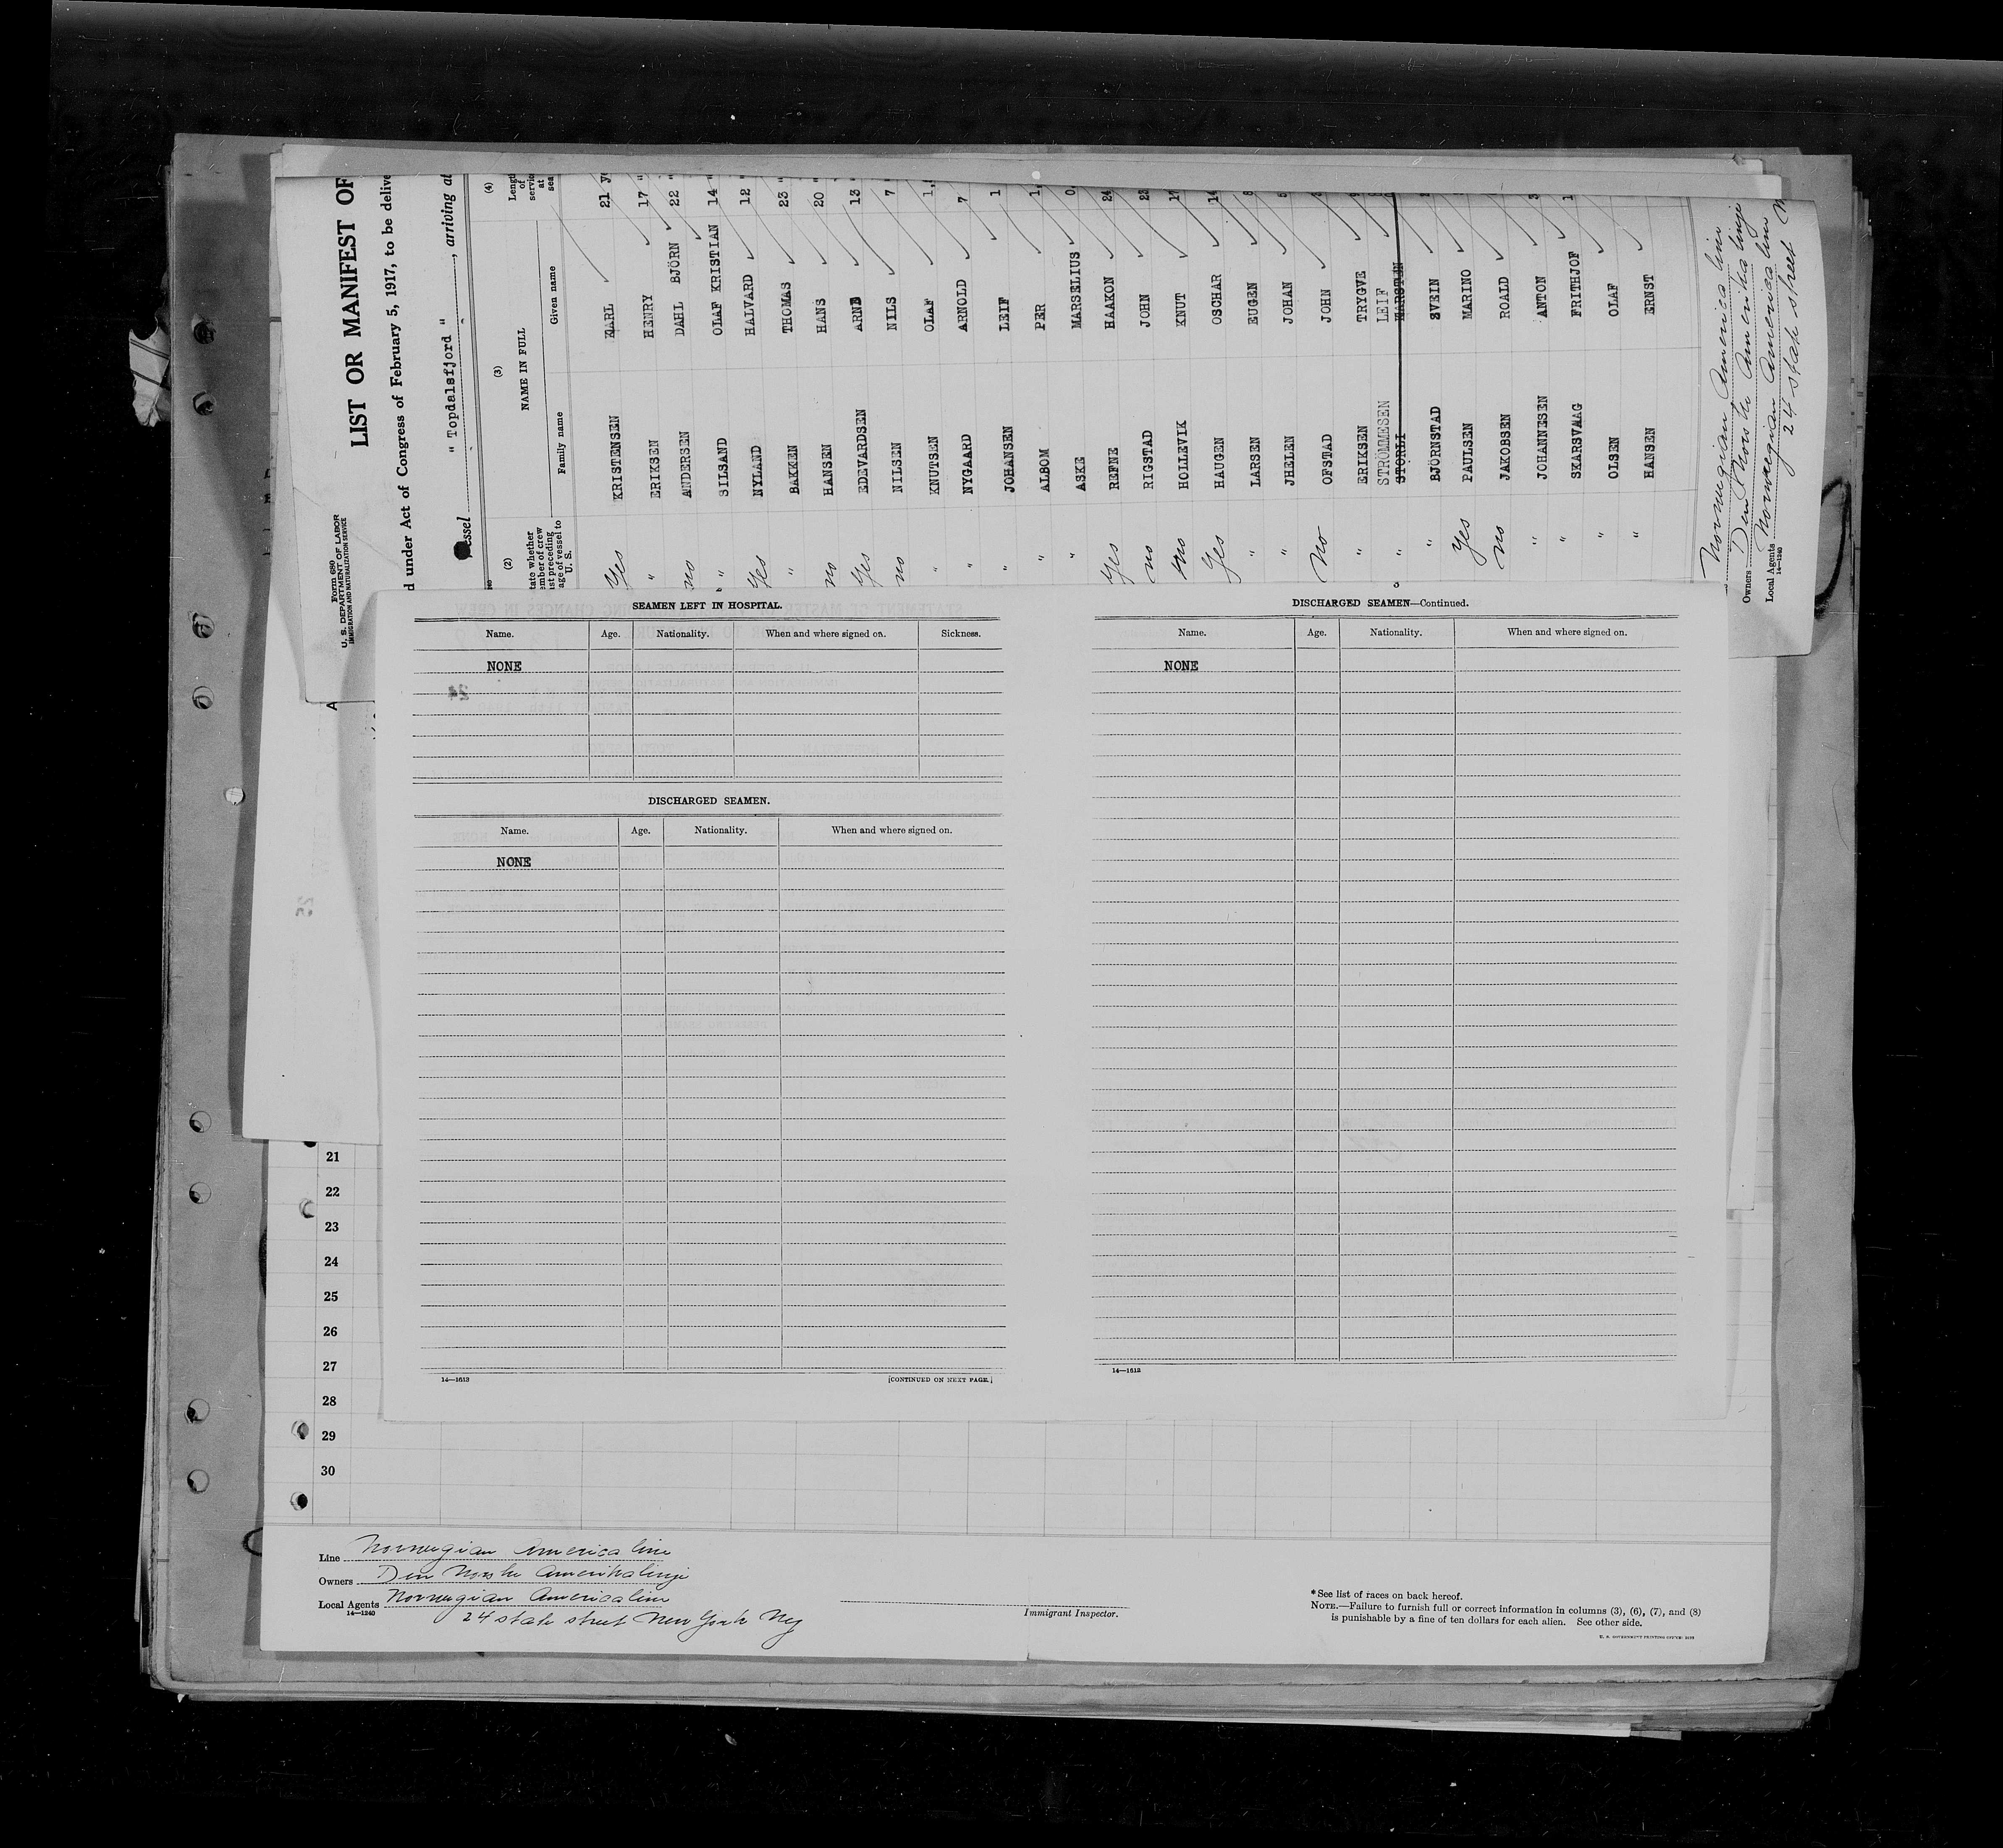 LIST OR MANIFEST OF
d under Act of Congress of February 5, 1917, to be delive
Form 680
U. S. DEPARTMENT OF LABOR
IMMIGRATION AND NATURALIZATION SERVICE
essel " Topdalsfjord " , arriving at
(2) (3) (4)
NAME IN FULL
tate whether
ember of crew
st preceding
age of vessel to
U. S.
Family name Given name
Length
of
servic
at
sea
Yes KRISTENSEN KARL 21 y
" ERIKSEN HENRY 17 "
no ANDERSEN DAHL BJÖRN 22 "
" SILSAND OLAF KRISTIAN 14 "
Yes NYLAND HALVARD 12 "
" BAKKEN THOMAS 23 "
no HANSEN HANS 20 "
Yes EDEVARDSEN ARNE 13 "
no NILSEN NILS 7 "
" KNUTSEN OLAF 1,
" NYGAARD ARNOLD 7
" JOHANSEN LEIF 1
" ALBOM PER 1,
" ASKE MARSELIUS 0,
Yes REFNE HAAKON 24
no RIGSTAD JOHN 23
no HOLLEVIK KNUT 17
Yes HAUGEN OSCHAR 14
" LARSEN EUGEN 8
" JHELEN JOHAN 5
No OFSTAD JOHN
" ERIKSEN TRYGVE
STRÖMMESEN LEIF
" STORLI KARSTEN
" BJÖRNSTAD SVEIN
Yes PAULSEN MARINO
no JAKOBSEN ROALD
" JOHANNESEN ANTON 3
" SKARSVAAG FRITHJOF 1
" OLSEN OLAF
" HANSEN ERNST
Norwegian America line
Owners Den Norske Amerikalinje
Local Agents Norwegian America line
14—1240
24 state street
SEAMEN LEFT IN HOSPITAL.
Name. Age. Nationality. When and where signed on. Sickness.
NONE
DISCHARGED SEAMEN.
Name. Age. Nationality. When and where signed on.
NONE
14—1613 [CONTINUED ON NEXT PAGE.]
DISCHARGED SEAMEN—Continued.
Name. Age. Nationality. When and where signed on.
NONE
14—1613
21
22
23
24
25
26
27
28
29
30
Line Norwegian America line
Owners Den Norske Amerikalinje
Local Agents Norwegian America line
14—1240
24 state street New York Ny
Immigrant Inspector.
* See list of races on back hereof.
NOTE.—Failure to furnish full or correct information in columns (3), (6), (7), and (8)
is punishable by a fine of ten dollars for each alien. See other side.